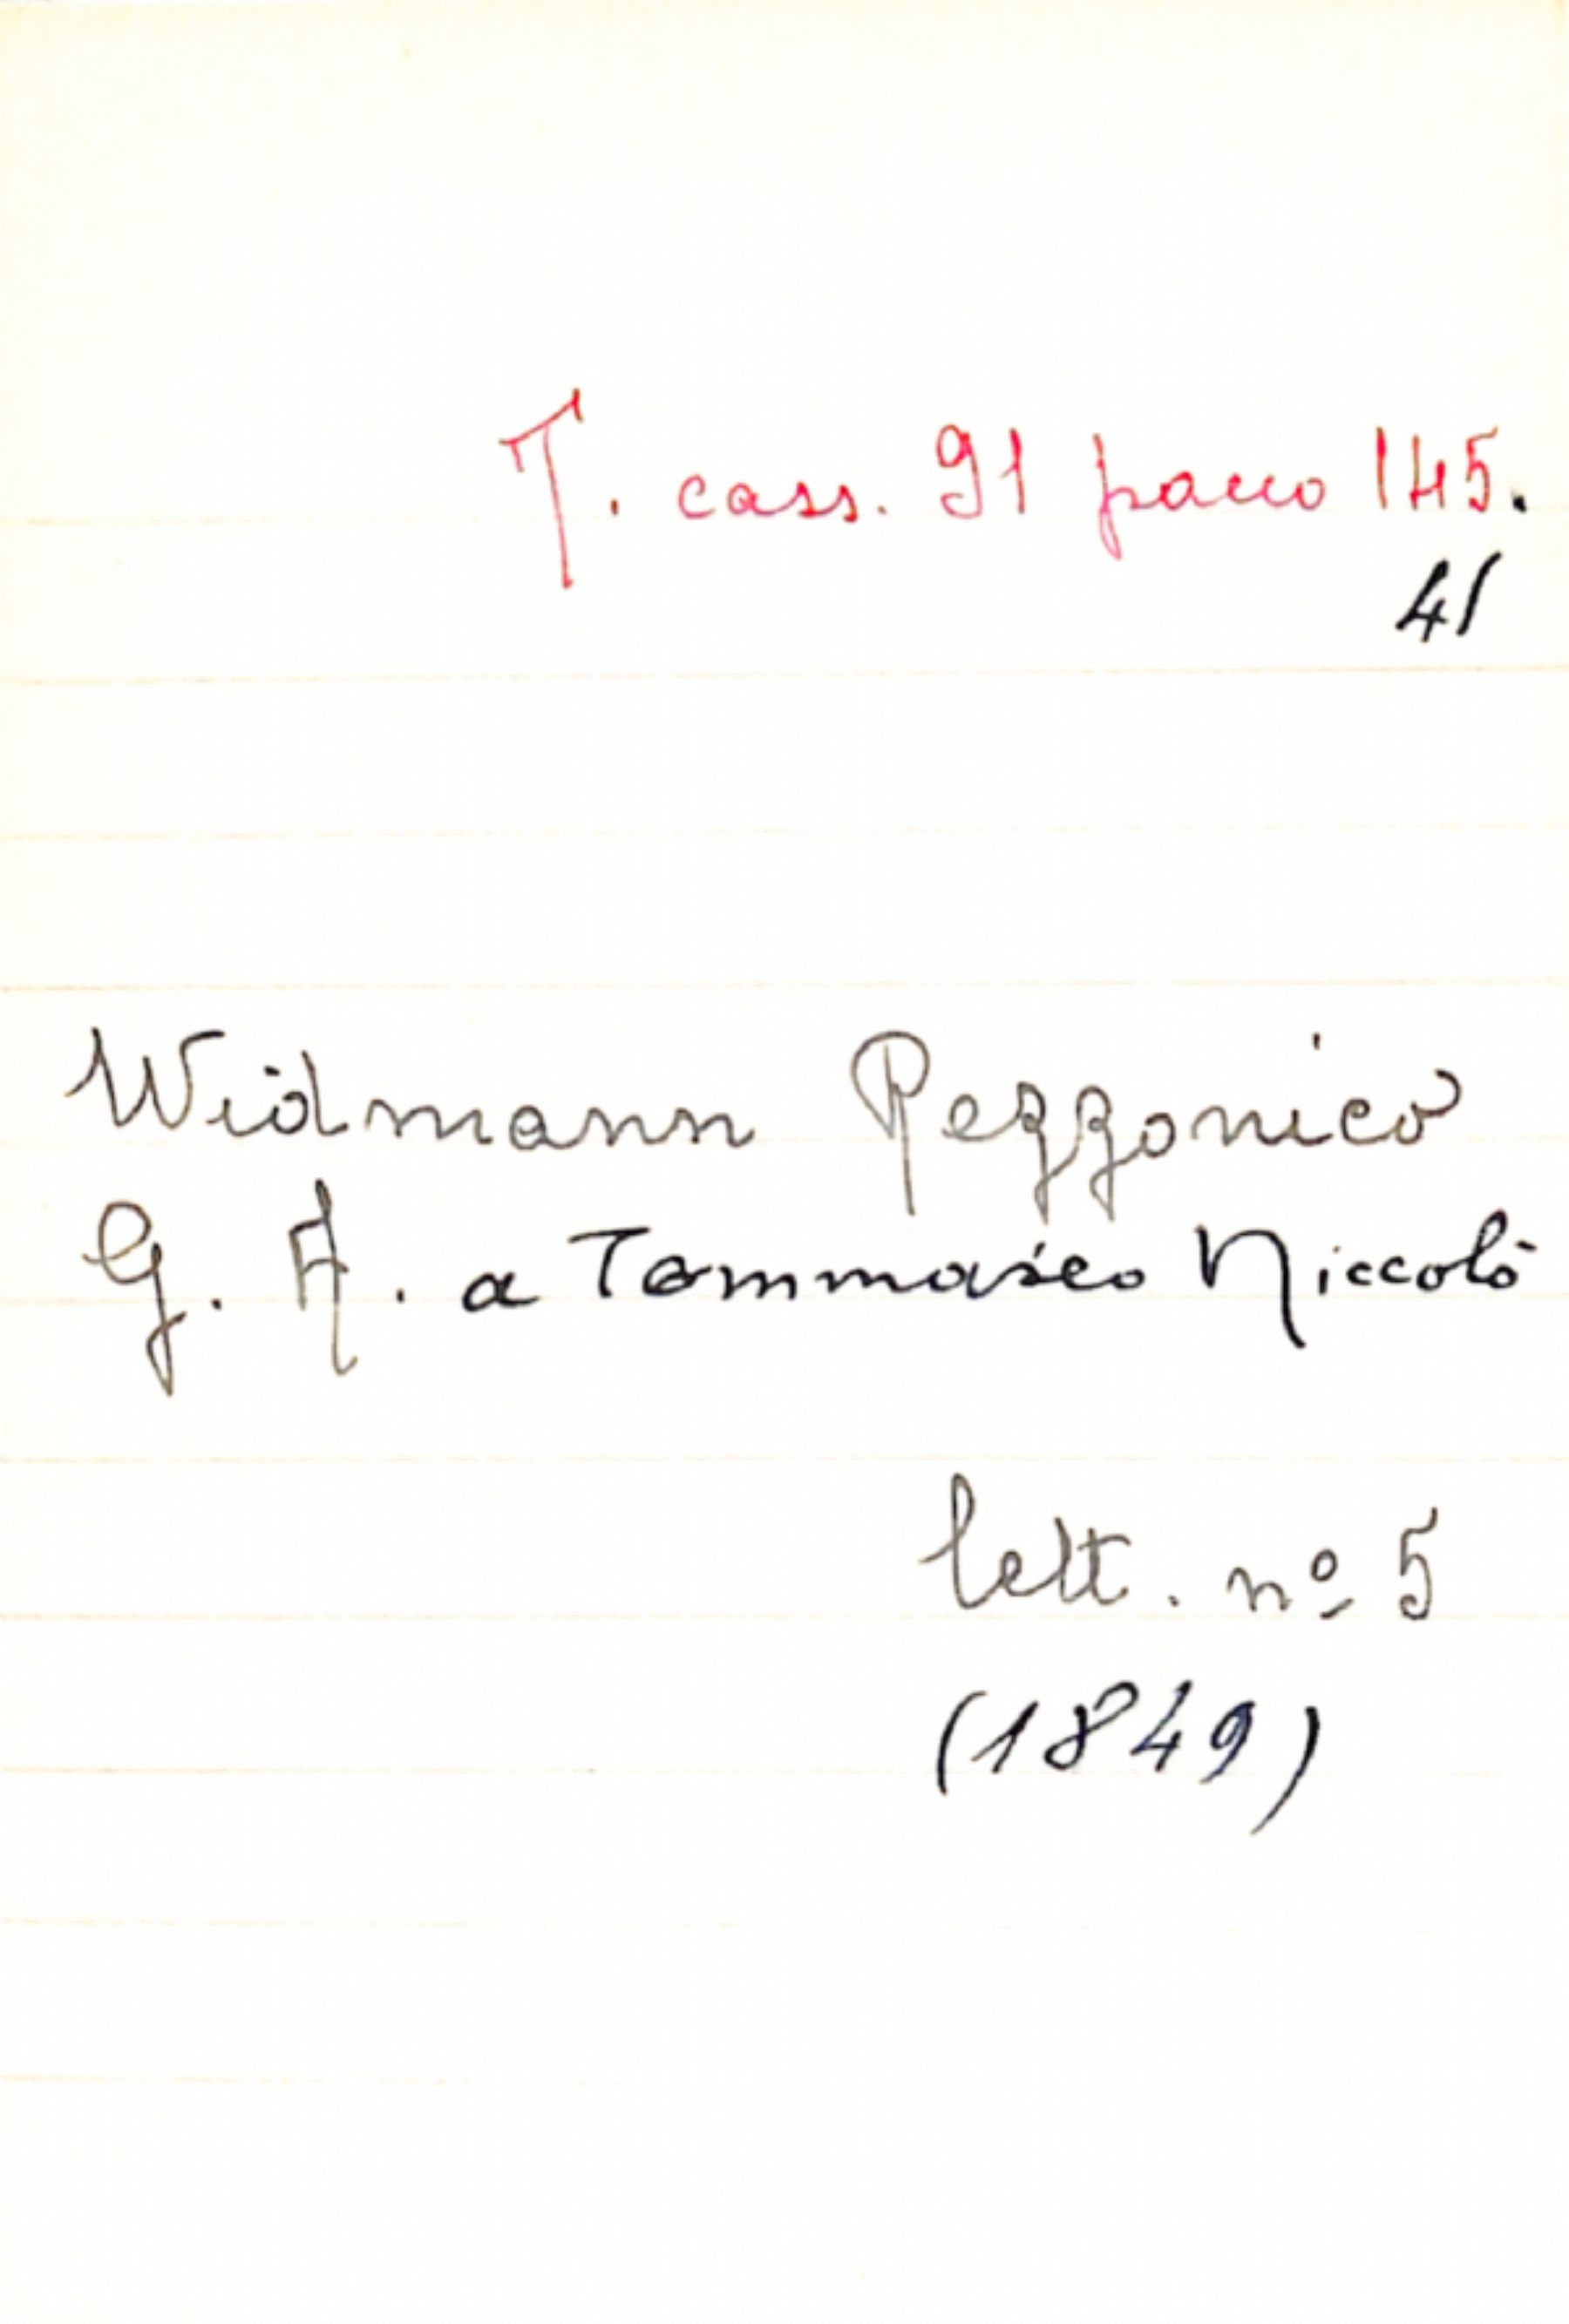 T. cass. 91 pacco 145.
41
Widmann Rezzonico
G. A. a Tommaseo Niccolò
lett. nº 5
(1849)